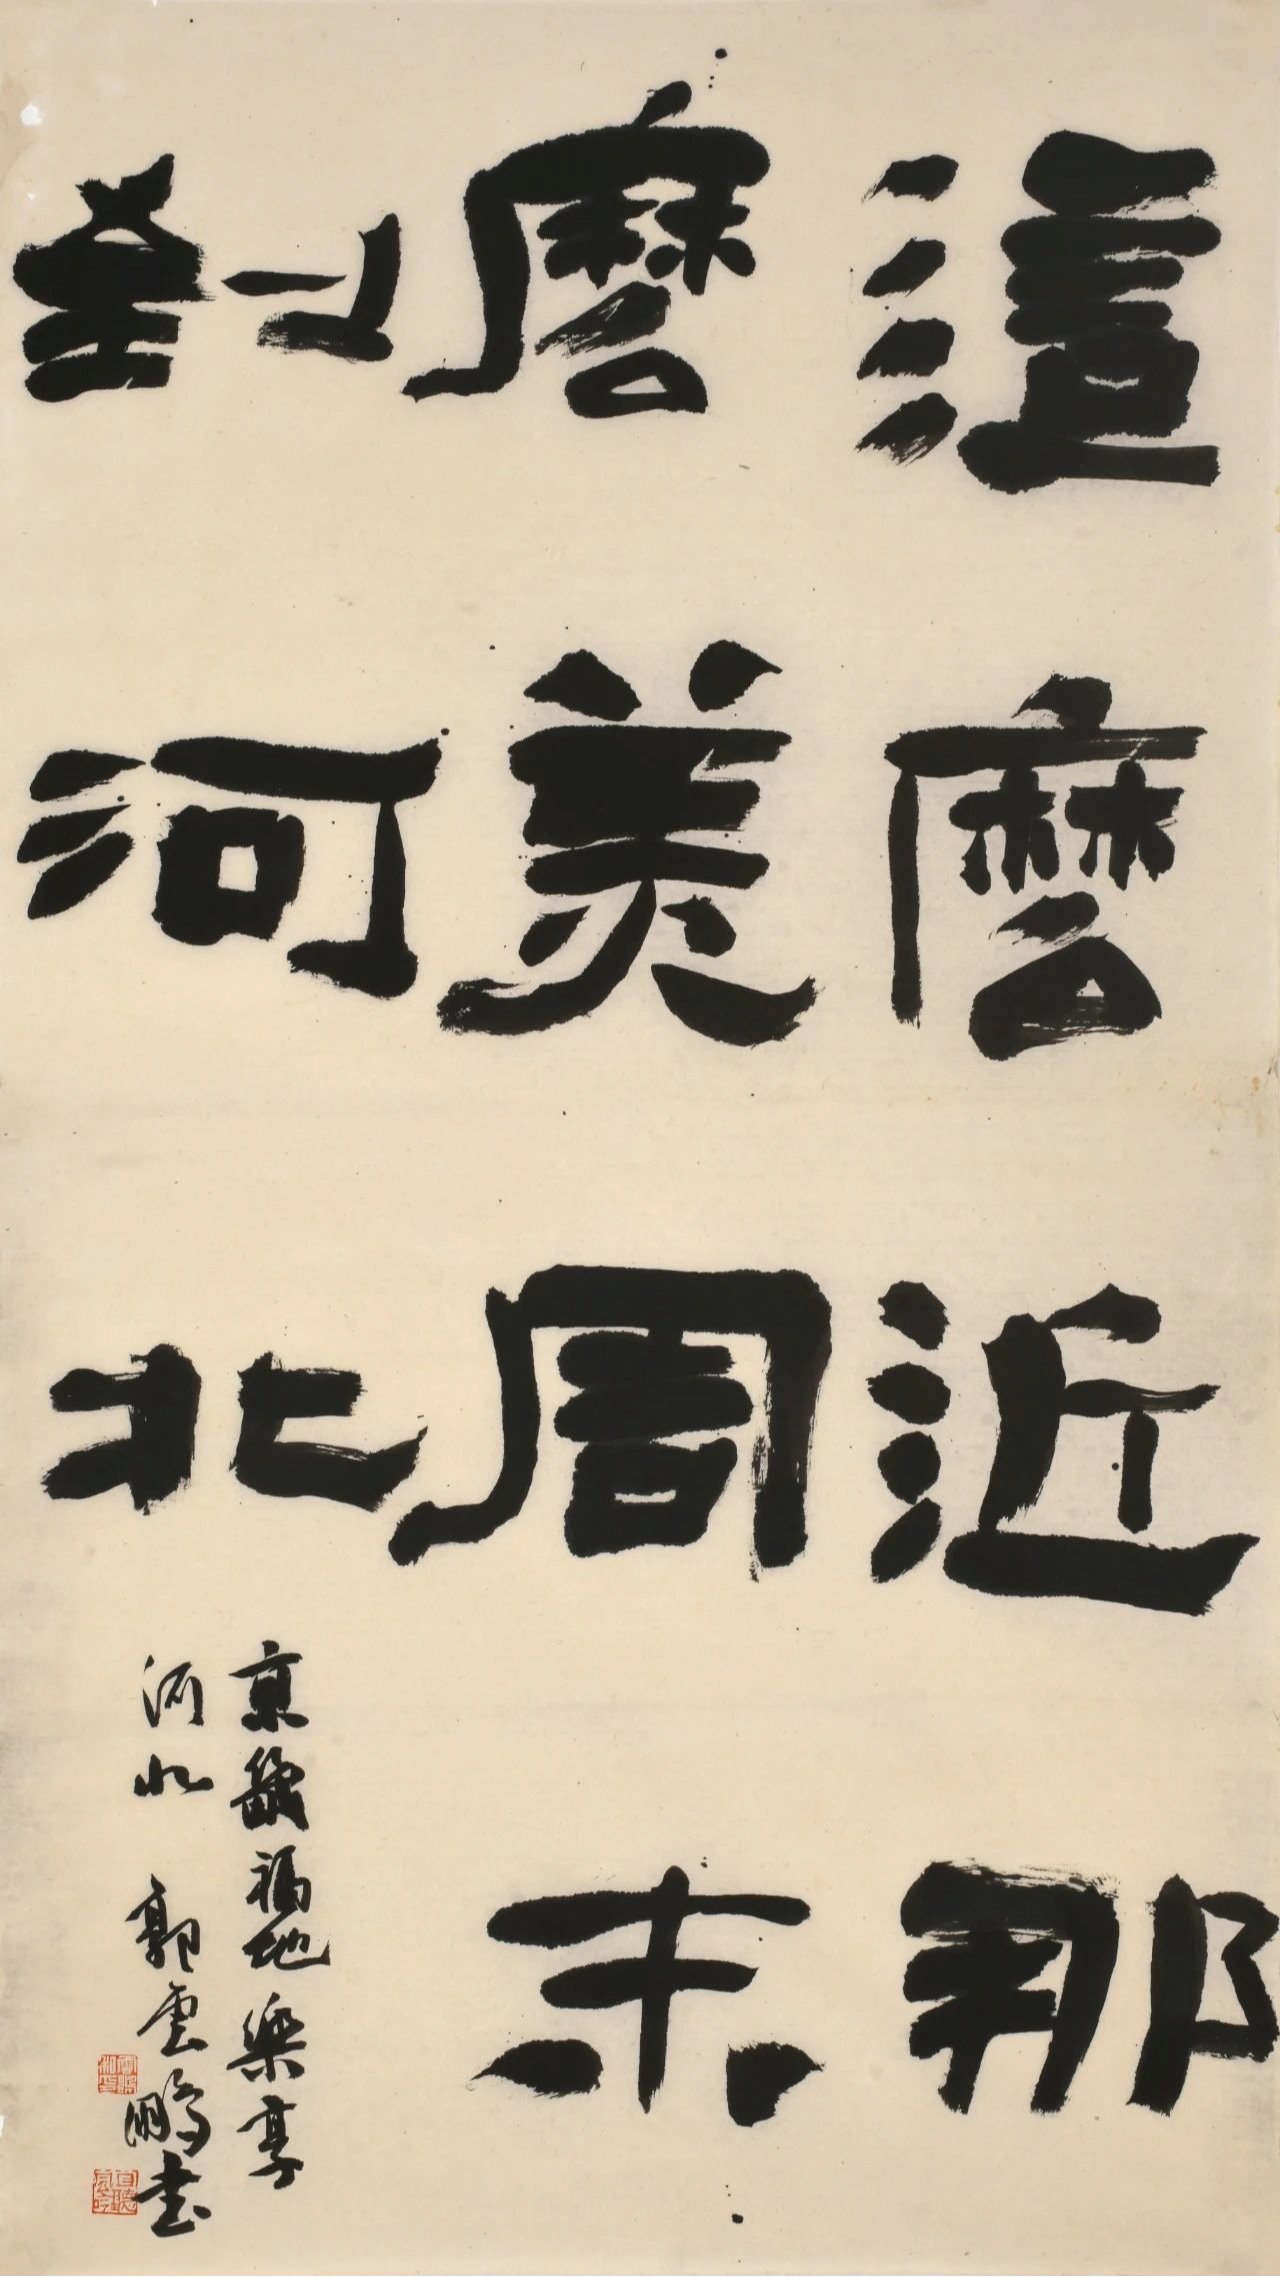 這麼近那
麼美周末
到河北
京畿福地樂享
河北 郭雲鵬書